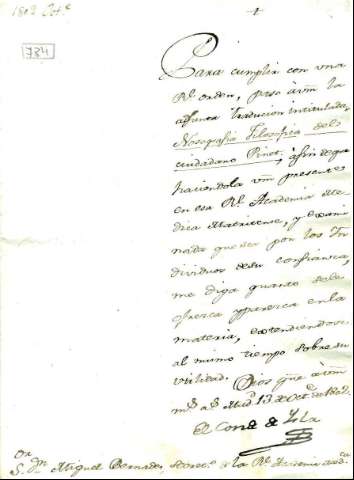 1802 Oct.e
734
Para cumplir con una
Rl. orden, paso á vm. la
adjunta traducion intitulada,
Nosografía Filosófica del
ciudadano Pinel, á fin de que
haciendola vm. presente
en esa Rl. Academia Me
dica Matritense, y exami
nada que sea por los In
dividuos de su confianza,
me diga quanto se le
ofrezca y parezca en la
materia, extendiendose
al mismo tiempo sobre su
utilidad. Dios gue. á vm.
ms. as. Madd. 13 de Oct.e de 1802.
El Conde de Isla
Sr. Dn. Miguel Barnades, Secreo. de la Rl. Academia